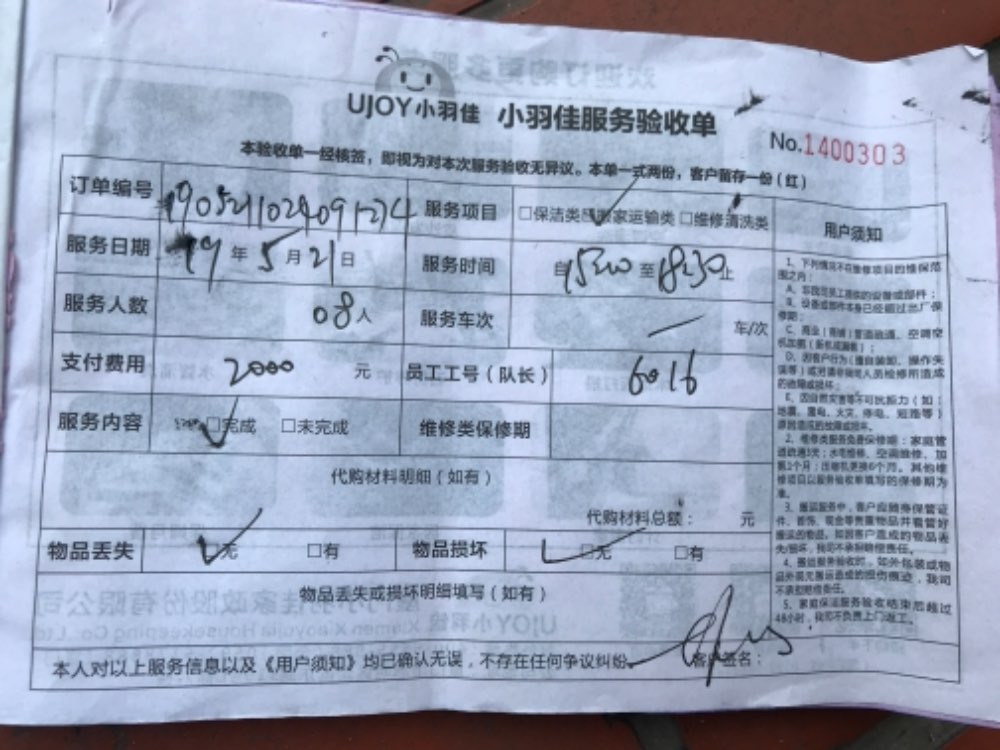 UJOY小羽佳 小羽佳服务验收单
No.1400303
本验收单一经核签，即视为对本次服务验收无异议。本单一式两份，客户留存一份（红）
订单编号 1905211024091274 服务项目 □保洁类 搬家运输类 □维修清洗类
服务日期 19年5月21日 服务时间 自15:00至18:30止
服务人数 08人 服务车次 车/次
支付费用 2000 元 员工工号（队长） 6016
服务内容 □完成 □未完成 维修类保修期
代购材料明细（如有）
代购材料总额： 元
物品丢失 无 □有 物品损坏 □无 □有
物品丢失或损坏明细填写（如有）
本人对以上服务信息以及《用户须知》均已确认无误，不存在任何争议纠纷。 客户签名：
用户须知
1、下列情况不在维修项目的维保范
围之内：
A、非我员工提供的设备或部件；
B、设备或部件本身已经超过出厂保
修期；
C、商业（商铺）管道疏通、空调空
E、因自然灾害等不可抗拒力（如：
地震、雷电、火灾、停电、短路等）
原因造成的故障或损坏。
2、维修类服务免费保修期：家庭管
道疏通3天；水电维修、空调维修、加
氟1个月；压缩机更换6个月。其他维
修项目以服务验收单填写的保修期为
准。
3、搬运服务中，客户应随身保管证
件、首饰、现金等贵重物品并看管好
搬运的物品。如因客户造成的物品丢
失/损坏，我司不承担赔偿责任。
4、搬运服务验收时，如外包装或物
品外表无搬运造成的损伤痕迹，我司
不承担赔偿责任。
5、家庭保运服务验收结束后超过
48小时，我司不负责上门返工。